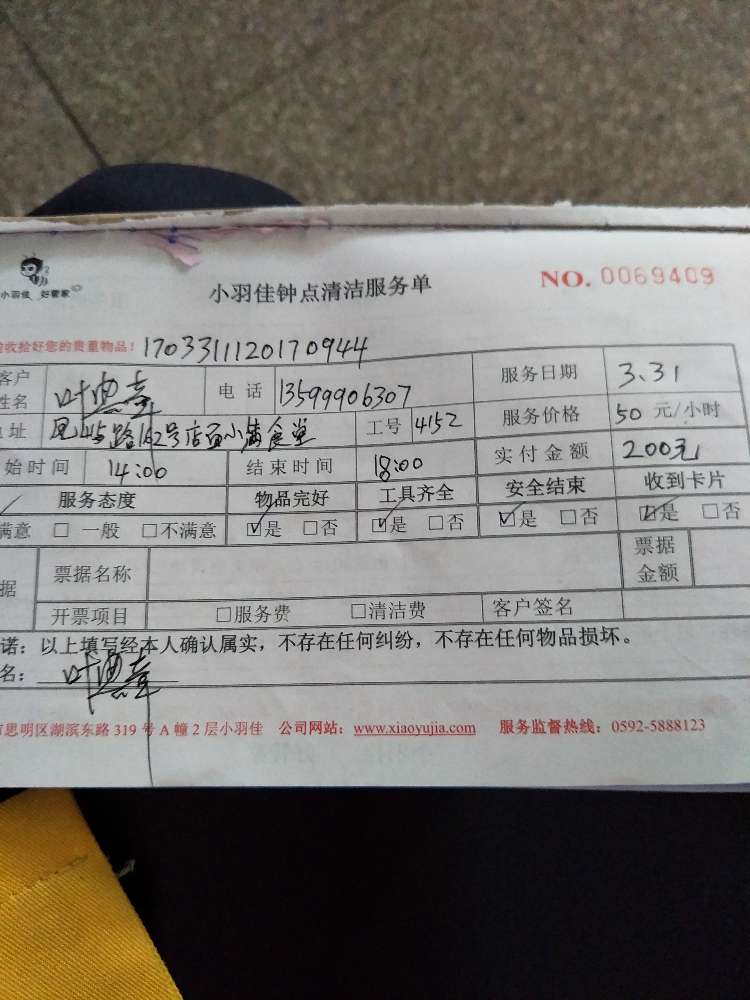 小羽佳 好管家
小羽佳钟点清洁服务单
NO. 0069409
收拾好您的贵重物品! 1703311120170944
客户姓名 叶惠 电话 13599906307 服务日期 3.31
址 路162号店面小满食堂 工号 4152 服务价格 50 元/小时
始时间 14:00 结束时间 18:00 实付金额 200元
服务态度 物品完好 工具齐全 安全结束 收到卡片
满意 □ 一般 □不满意 ☑是 □否 ☑是 □否 ☑是 □否 ☑是 □否
据 票据名称 票据金额
开票项目 □服务费 □清洁费 客户签名
诺：以上填写经本人确认属实，不存在任何纠纷，不存在任何物品损坏。
名： 叶惠
思明区湖滨东路 319 号 A 幢 2 层小羽佳 公司网站：www.xiaoyujia.com 服务监督热线：0592-5888123